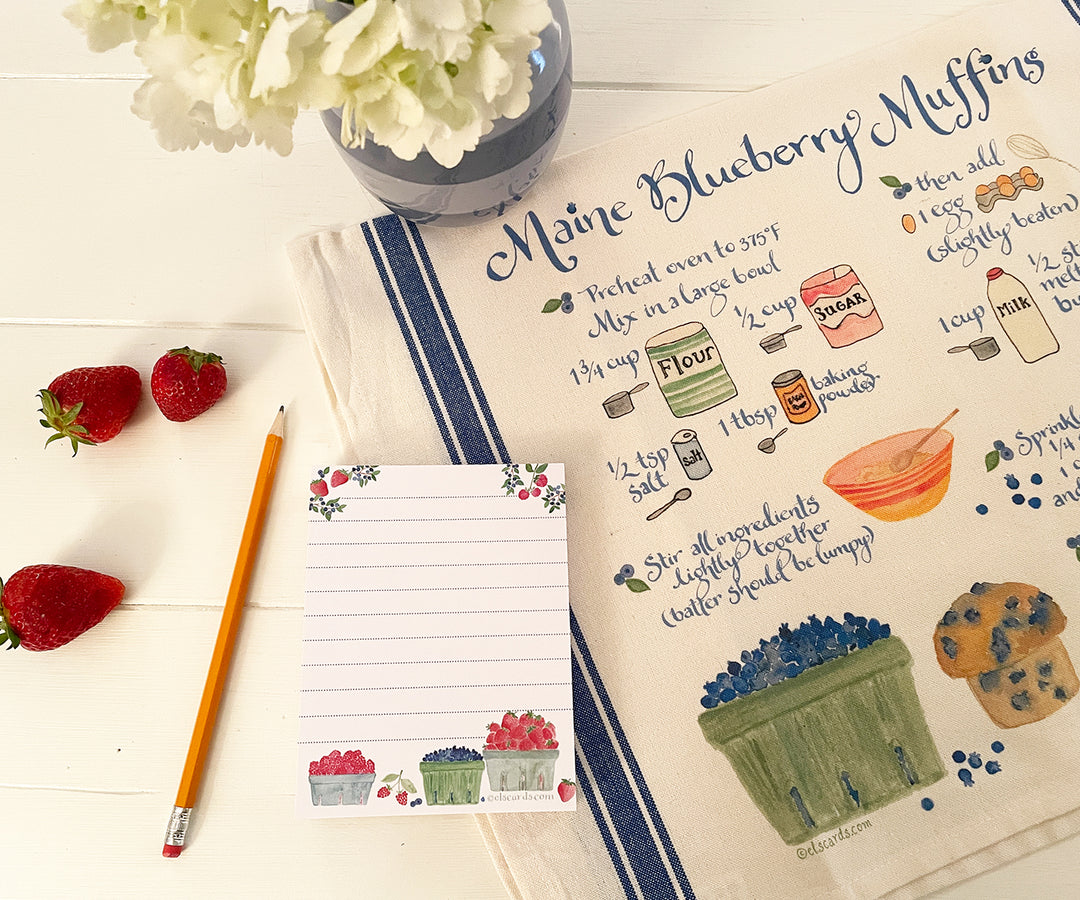 Maine Blueberry Muffins
Preheat oven to 375°F
Mix in a large bowl
1 3/4 cup
Flour
1/2 cup
SUGAR
1/2 tsp
salt
salt
1 tbsp
baking
powder
Stir all ingredients
lightly together
(batter should be lumpy)
then add
1 egg
(slightly beaten)
1 cup
Milk
1/2
Sprinkle
1/4
©elscards.com
©elscards.com